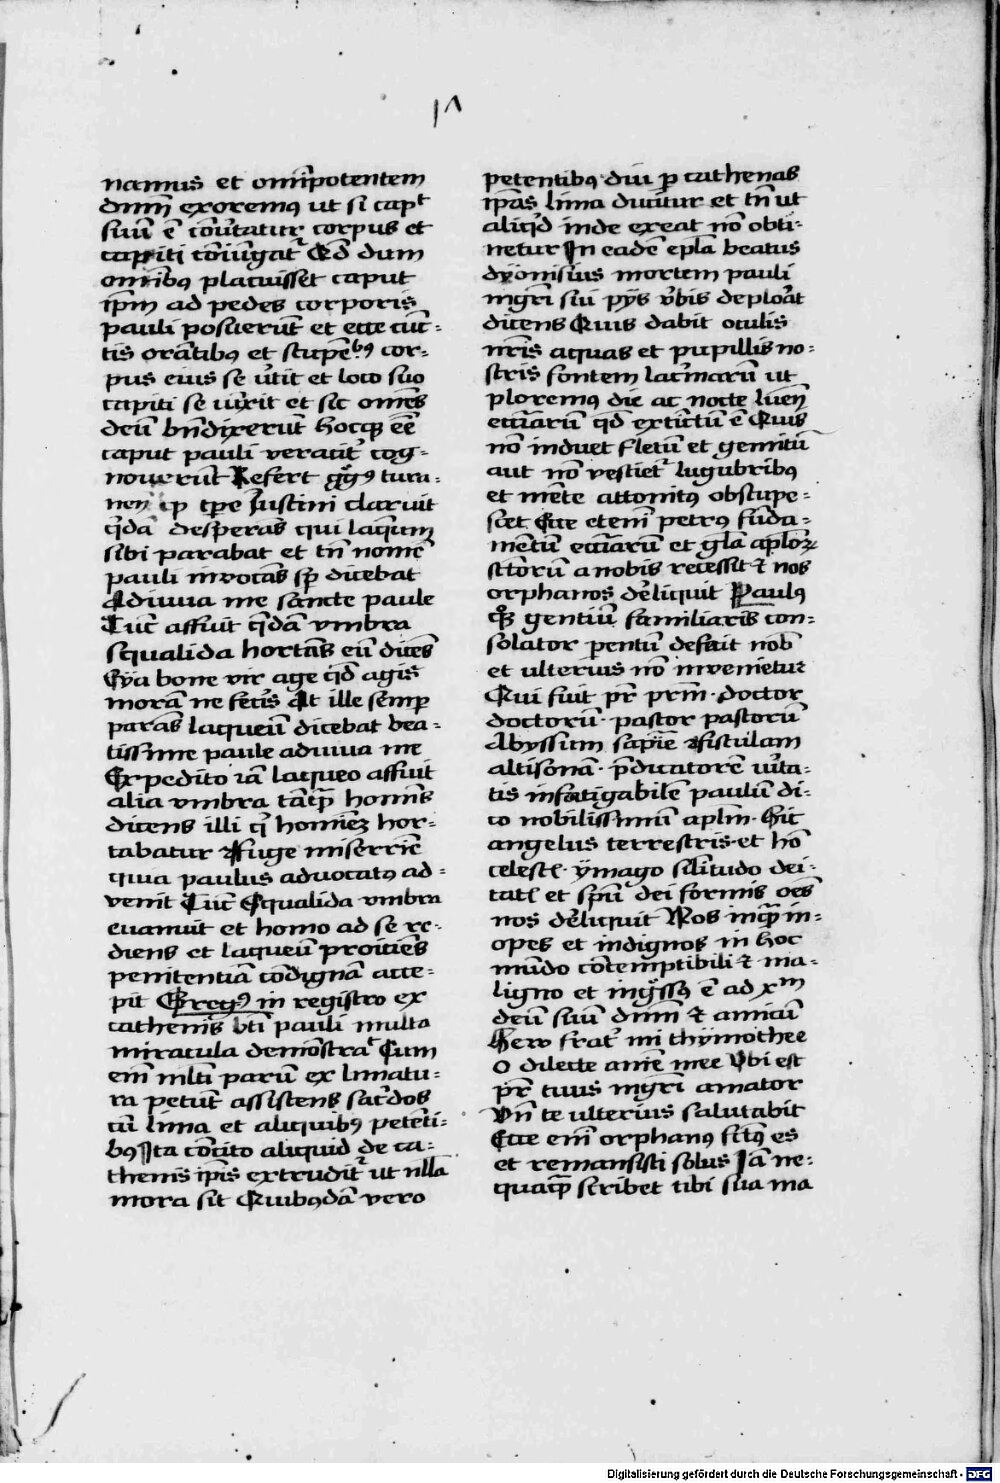 namus et om̄ipotentem
dnm̄ exoremus ut si capᵗ
suū ē cōu̓tatur corpus et
capiti cōiungat᷑ Qd̄ dum
om̄ibꝰ placuisset caput
ip̄m ad pedes corporis
pauli posuerūt et ecce cūc-
tis orātibꝰ et stupēᵇꝰ cor-
pus eius se u̓tit et loco suo
capiti se iūxit et sic om̄es
deū bn̄dixerūt hocq̨ eē
caput pauli veracit᷑ cog-
nouerūt Refert gg̊ꝰ turo-
nen̄ ꝙ tp̄e Iustini claruit
q̓dā desperās qui laqueum
sibi parabat et tn̄ nomē
pauli inuocās sp̄ dicebat
Adiuua me sancte paule
Tūc affuit q̄dā vmbra
squalida hortās eū dicēs
Eya bone vir age qd̓ agis
morā ne fec̓is At ille semp̄
parās laqueū dicebat bea-
tissime paule adiuua me
Expedito iā laqueo affuit
alia vmbra tāq̄ȝ homīs
dicens illi q̓ homīeȝ hor-
tabatur Fuge miserrīe
quia paulus aduocatꝰ ad-
venit Tūc Squalida vmbra
euanuit et homo ad se re-
diens et laqueū proiciēs
penitentiā cōdignā acce-
pit Gregꝰ in registro ex
cathenis btī pauli multa
miracula demōstrat᷑ Cum
em̄ mlti parū ex limatu-
ra petūt assistens sac̓dos
cū lima et aliquibꝰ petēti-
bꝰ Ita cōcito aliquid de ca-
thenis ip̄is extrudit᷑ ut nlla
mora sit Quibꝰdā vero
petentibꝰ diu p̄ cathenas
ip̄as lima ducitur et tn̄ ut
aliqd̓ inde exeat nō obti-
netur In eadē ep̄la beatus
dyonisius mortem pauli
mgr̄i sui pijs v̓bis deplorat
dicens Quis dabit oculis
nr̄is aquas et pupillis no-
stris fontem lacrimarū ut
ploremꝰ die ac nocte lucē
ecciarū qd̄ extīctū ē Quis
nō induet fletū et gemitū
aut nō vestiet᷑ lugubribꝰ
et mēte attonitꝰ obstupe-
scet Ecce etem̄ petrꝰ fūda-
mētū ecciarū et gl̄a aplōꝝ
sctōrū a nobis recessit et nos
orphanos de̓liquit Paulꝰ
qꝫ gentiū familiaris con-
solator pentū defecit nob̄
et ulterius nō inuenietur
Qui fuit pr̄ pr̄m · doctor
doctorū · pastor pastorū
Abyssum sapīe fistulam
altisonā · p̄dicatorē v̓ita-
tis infatigabilē paulū di-
co nobilissimū aplm̄ · Hic
angelus terrestris · et hō
celestꝭ · ymago silītudo dei-
tatꝭ et spū dei formis oēs
nos de̓liquit Nos inq̄ȝ in-
opes et indignos in hoc
mūdo cōtemptibili et ma-
ligno et ing̓ssꝰ ē ad xᵐ
deū suū dnm̄ et amicū
Heu frat᷑ mi thymothee
O dilecte anīe mee Vbi est
pr̄ tuus mgr̄i amator
Vn̄ te ulterius salutabit
Ecce em̄ orphanꝰ fctꝰ es
et remansisti solus Iā ne-
quaq̄ȝ scribet tibi sua ma
Digitalisierung gefördert durch die Deutsche Forschungsgemeinschaft - DFG